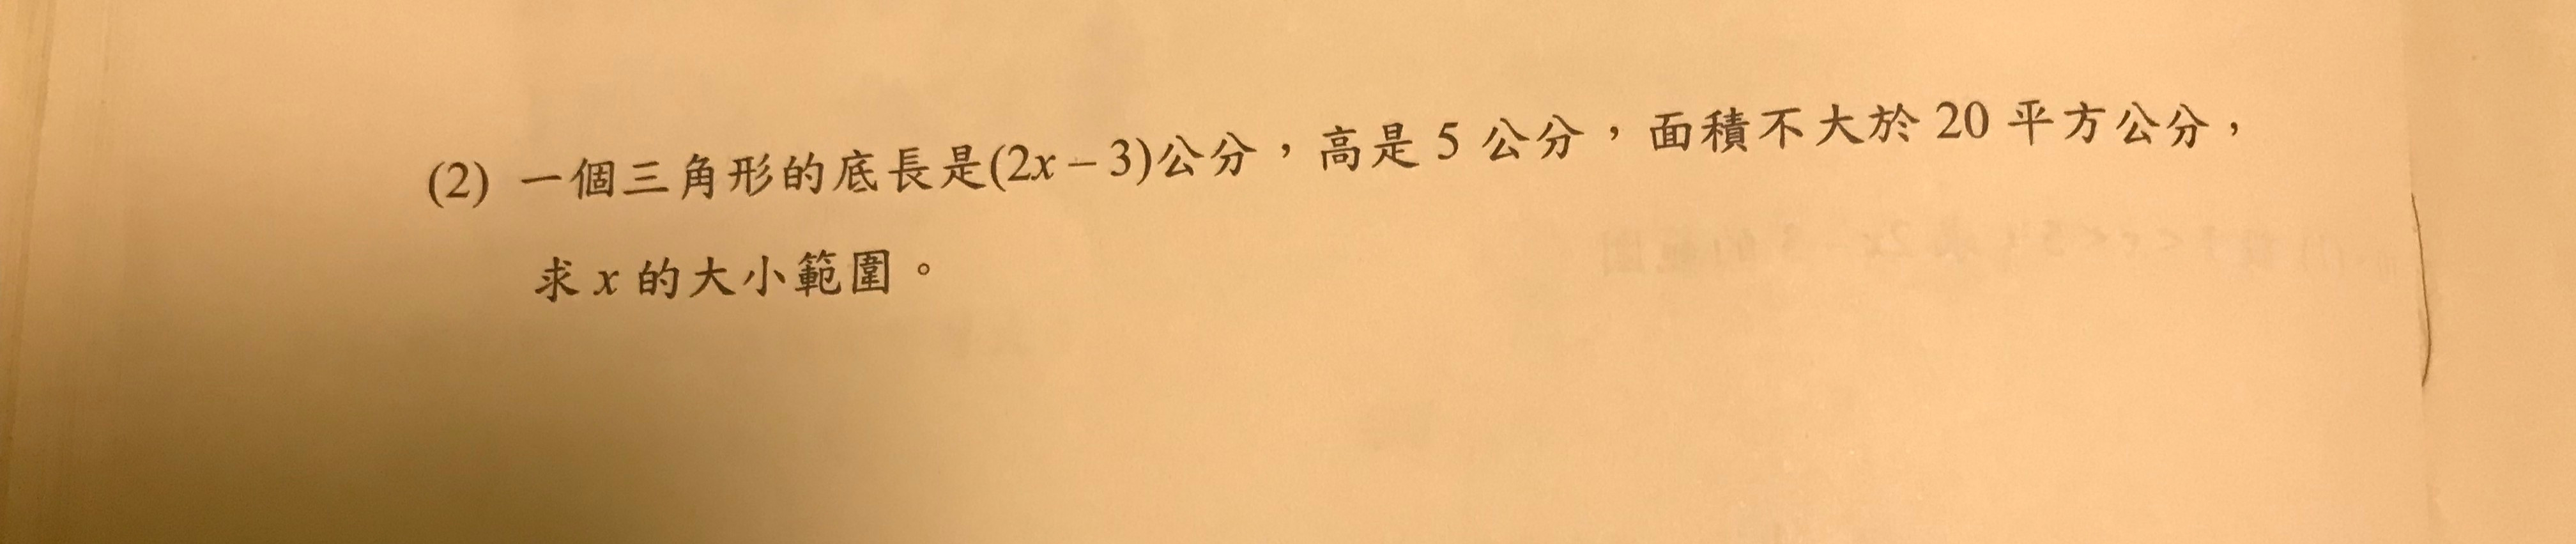 (2) 一個三角形的底長是(2x－3)公分，高是 5 公分，面積不大於 20 平方公分，
求 x 的大小範圍。